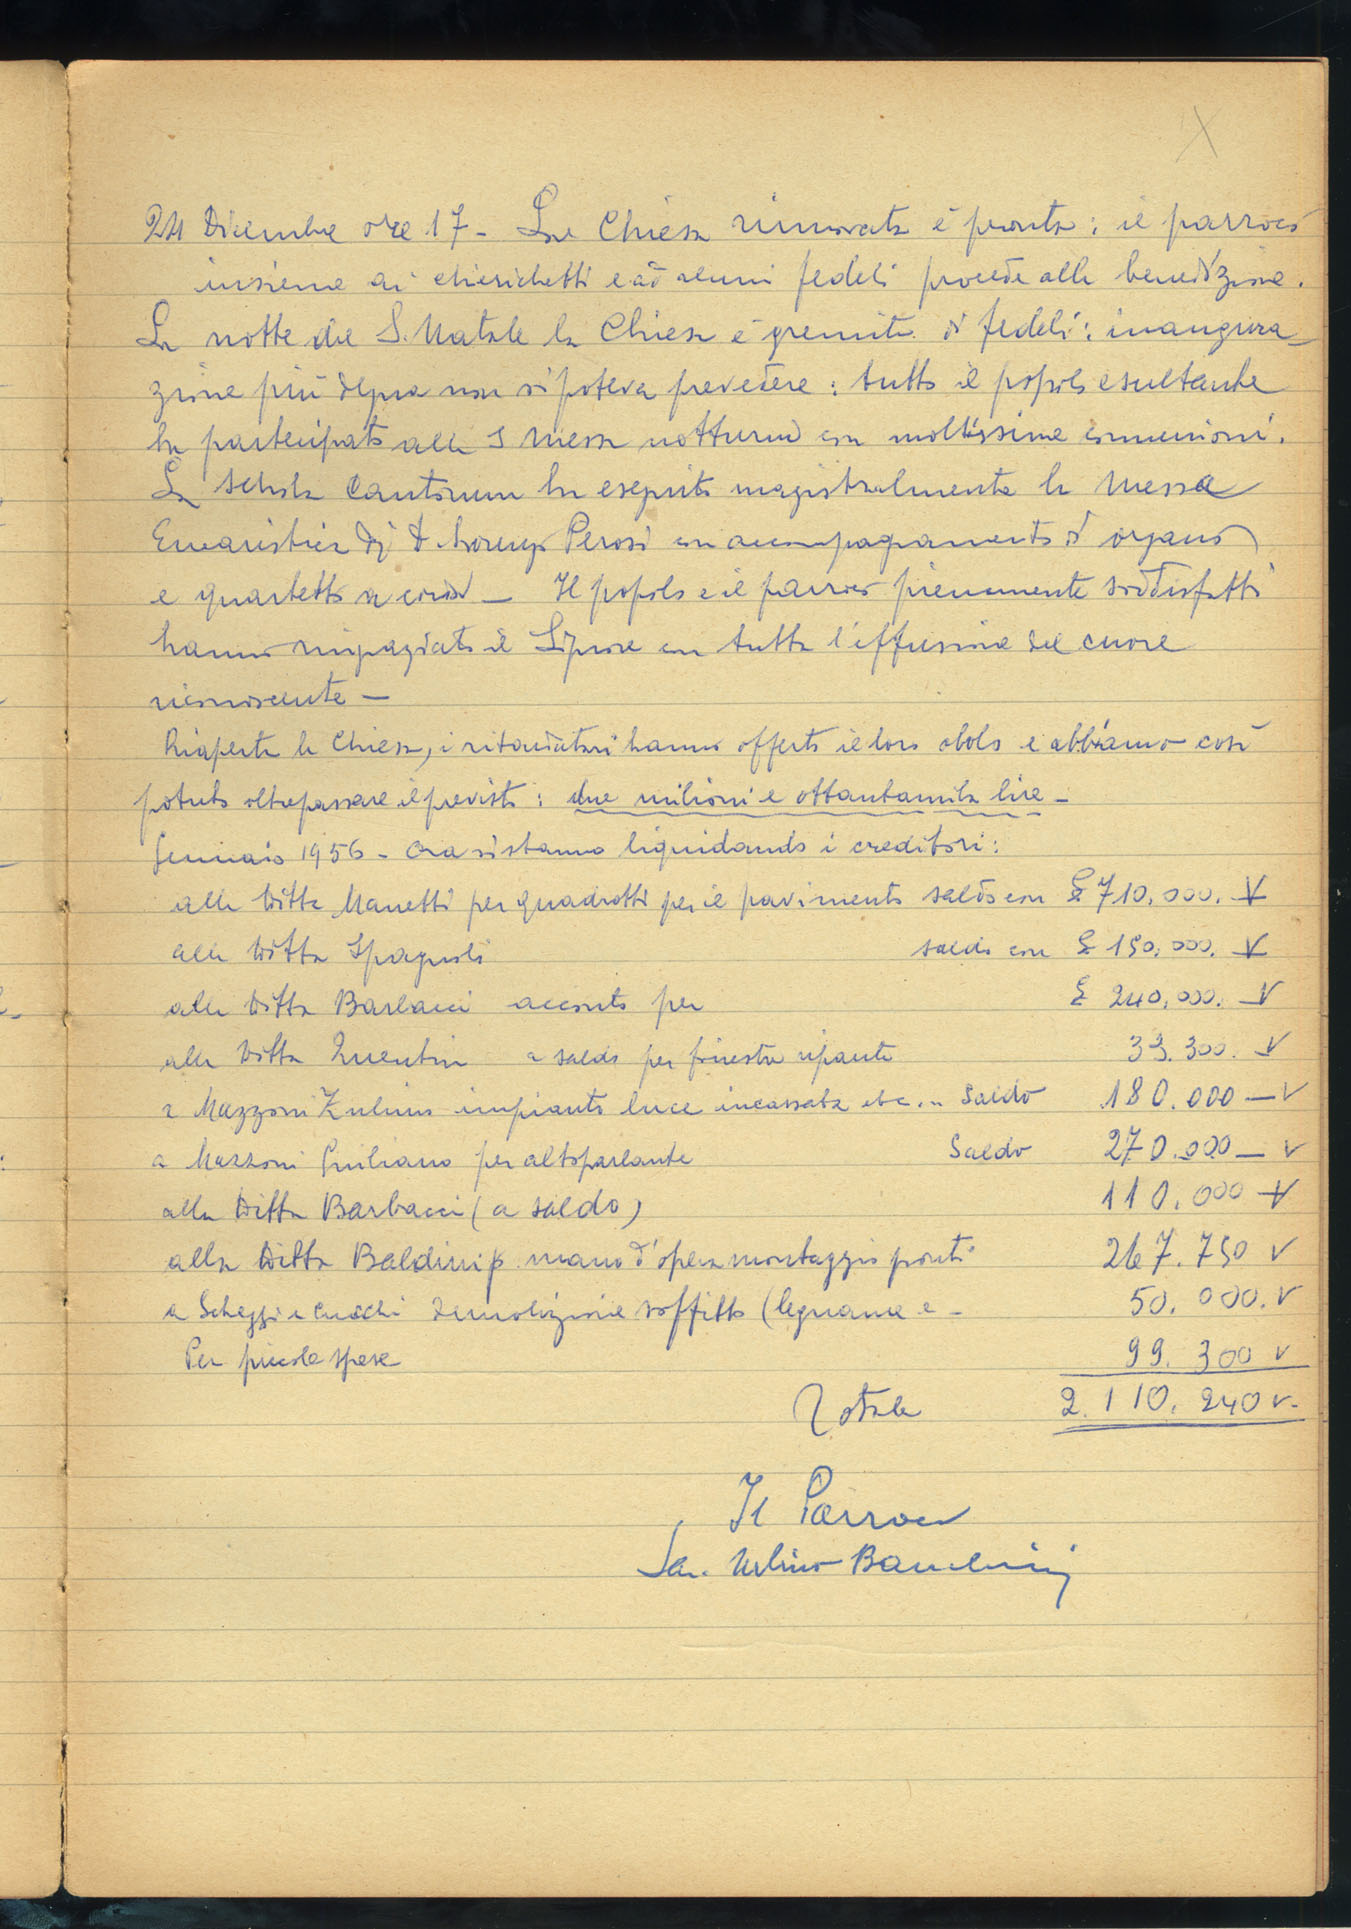 X
24 Dicembre ore 17 - La Chiesa rinnovata è pronta: il parroco
insieme ai chierichetti e ad alcuni fedeli procede alla benedizione.
La notte del S. Natale la Chiesa è gremita di fedeli: inaugura_
zione più degna non si poteva prevedere: tutto il popolo esultante
ha partecipato alla S Messa notturna con moltissime comunioni.
La Schola Cantorum ha eseguito magistralmente la Messa
Eucaristica di D. Lorenzo Perosi con accompagnamento d'organo
e quartetto a corda - Il popolo e il parroco pienamente soddisfatti
hanno ringraziato il Signore con tutta l'effusione del cuore
riconoscente -
Riaperta la Chiesa, i ritardatari hanno offerto il loro obolo e abbiamo così
potuto oltrepassare il previsto: due milioni e ottantamila lire -
Gennaio 1956 - Ora si stanno liquidando i creditori:
alla Ditta Manetti per quadrotti per il pavimento saldo con £ 710.000. V
alla Ditta Spagnoli saldo con £ 150.000. V
alla Ditta Barbacci acconto per £ 240.000. V
alla Ditta a saldo per finestre riparate 33.300. V
a Mazzoni impianto luce incassata etc.. Saldo 180.000 - V
a Mazzoni Giuliano per altoparlante Saldo 270.000 - V
alla Ditta Barbacci (a saldo) 110.000 V
alla Ditta Baldini p. mano d'opera montaggio ponti 267.750 V
a Scheggi e demolizione soffitto (legname e - 50.000. V
Per piccole spese 99.300 V
Totale 2.110.240 V.
Il Parroco
Sac. Urbino